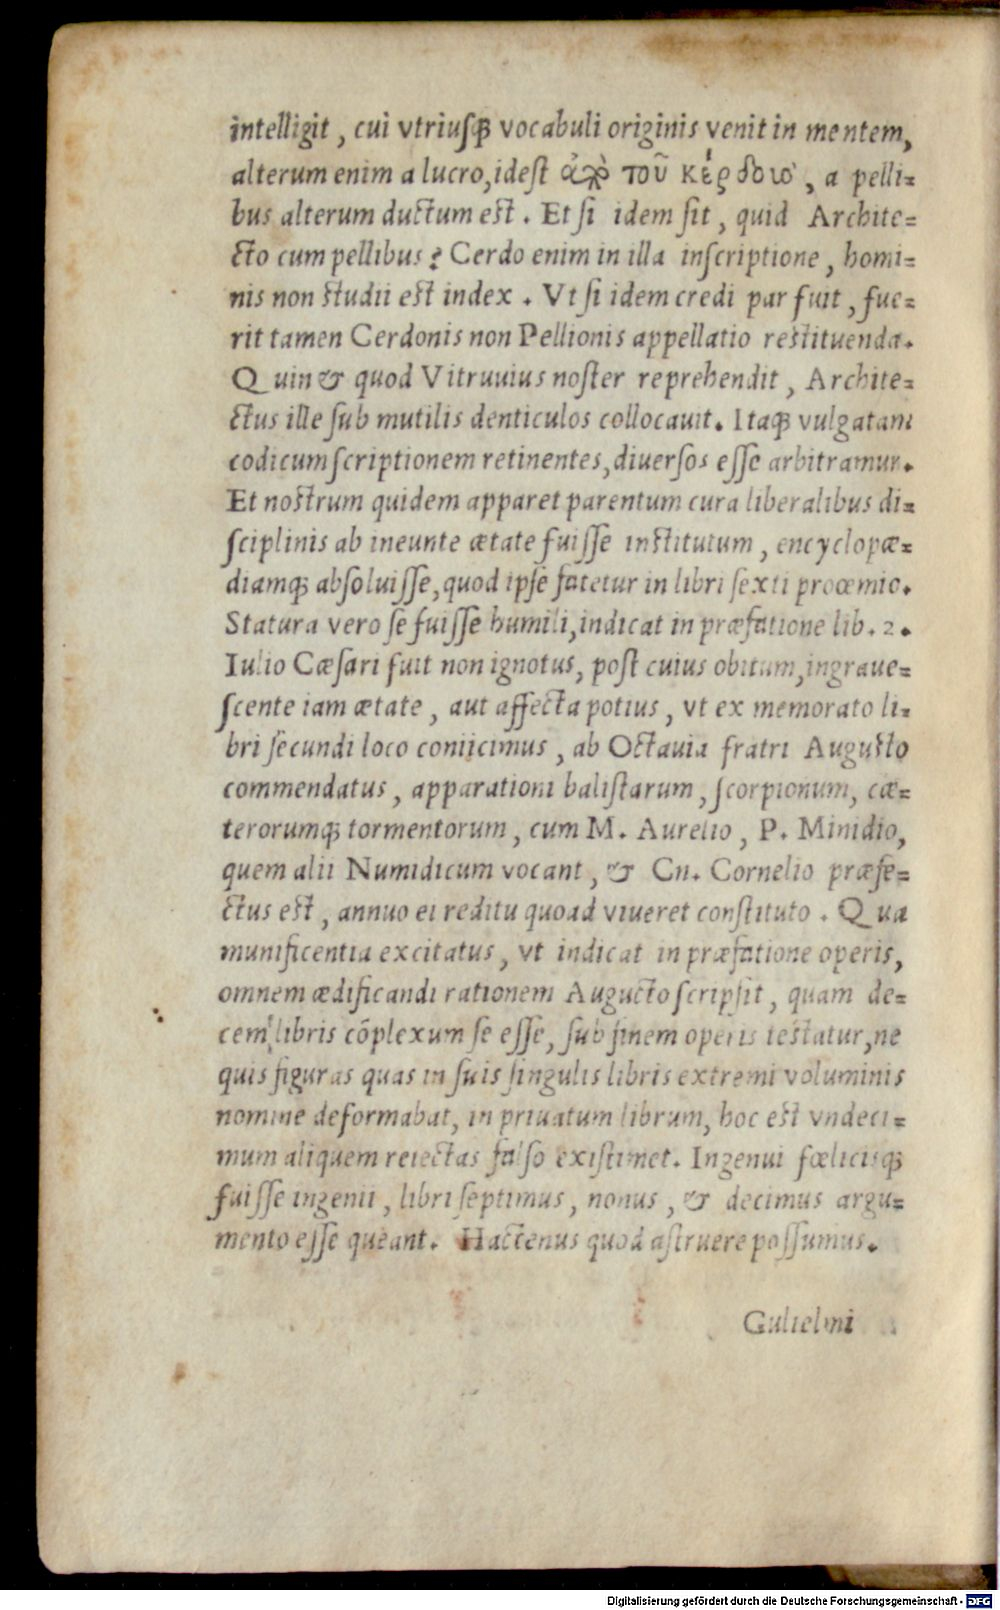 intelligit, cui vtriusq́ꝫ vocabuli originis venit in mentem,
alterum enim a lucro, idest ἀπὸ τοῦ κέρδους, a pelli=
bus alterum ductum est. Et si idem sit, quid Archite=
cto cum pellibus? Cerdo enim in illa inscriptione, homi=
nis non studii est index. Vt si idem credi par fuit, fue=
rit tamen Cerdonis non Pellionis appellatio restituenda.
Quin & quod Vitruuius noster reprehendit, Archite=
ctus ille sub mutilis denticulos collocauit. Itaqꝫ vulgatam
codicum scriptionem retinentes, diuersos esse arbitramur.
Et nostrum quidem apparet parentum cura liberalibus di=
sciplinis ab ineunte ætate fuisse institutum, encyclopæ=
diamqꝫ absoluisse, quod ipse fatetur in libri sexti proœmio.
Statura vero se fuisse humili, indicat in præfatione lib. 2.
Iulio Cæsari fuit non ignotus, post cuius obitum, ingraue=
scente iam ætate, aut affecta potius, vt ex memorato li=
bri secundi loco coniicimus, ab Octauia fratri Augusto
commendatus, apparationi balistarum, scorpionum, cæ=
terorumqꝫ tormentorum, cum M. Aurelio, P. Minidio,
quem alii Numidicum vocant, & Cn. Cornelio præfe=
ctus est, annuo ei reditu quoad viueret constituto. Qua
munificentia excitatus, vt indicat in præfatione operis,
omnem ædificandi rationem Augucto scripsit, quam de=
cem libris cõplexum se esse, sub finem operis testatur, ne
quis figuras quas in suis singulis libris extremi voluminis
nomine deformabat, in priuatum librum, hoc est vndeci=
mum aliquem reiectas falso existimet. Ingenui fœlicisqꝫ
fuisse ingenii, libri septimus, nonus, & decimus argu=
mento esse queant. Hactenus quod astruere possumus.
Gulielmi
Digitalisierung gefördert durch die Deutsche Forschungsgemeinschaft - DFG